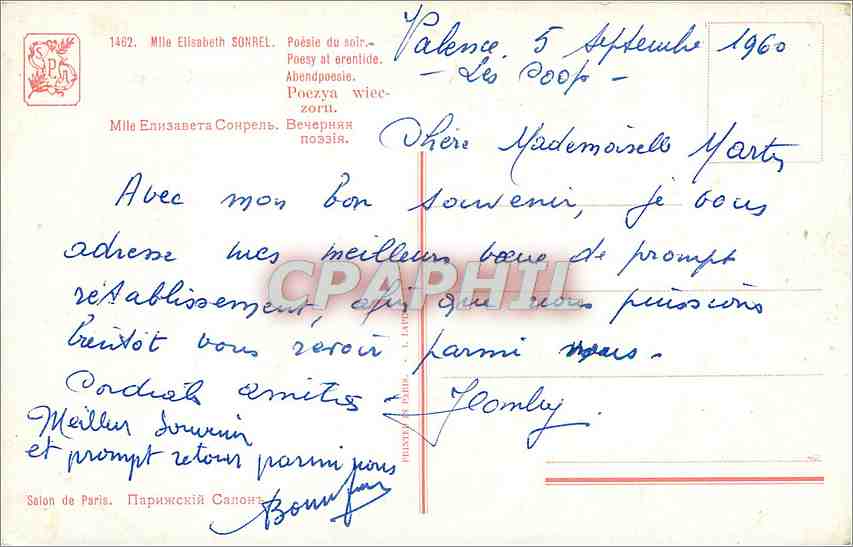 SPA
1462. Mlle Elisabeth SONREL. Poésie du soir.-
Poesy at erentide.
Abendpoesie.
Poezya wiec-
zoru.
Mlle Елизавета Сонрель. Вечерняя
поэзія.
Valence, 5 Septembre 1960
- Les Coop -
Chère Mademoiselle Marty
Avec mon bon souvenir, je vous
adresse mes meilleurs voeux de prompt
rétablissement, afin que nous puissions
bientôt vous revoir parmi nous.
Cordiales amitiés
Meilleur Souvenir
et prompt retour parmi nous
CPAPHIL
PRINTED IN PARIS.
Salon de Paris. Парижскій Салонъ